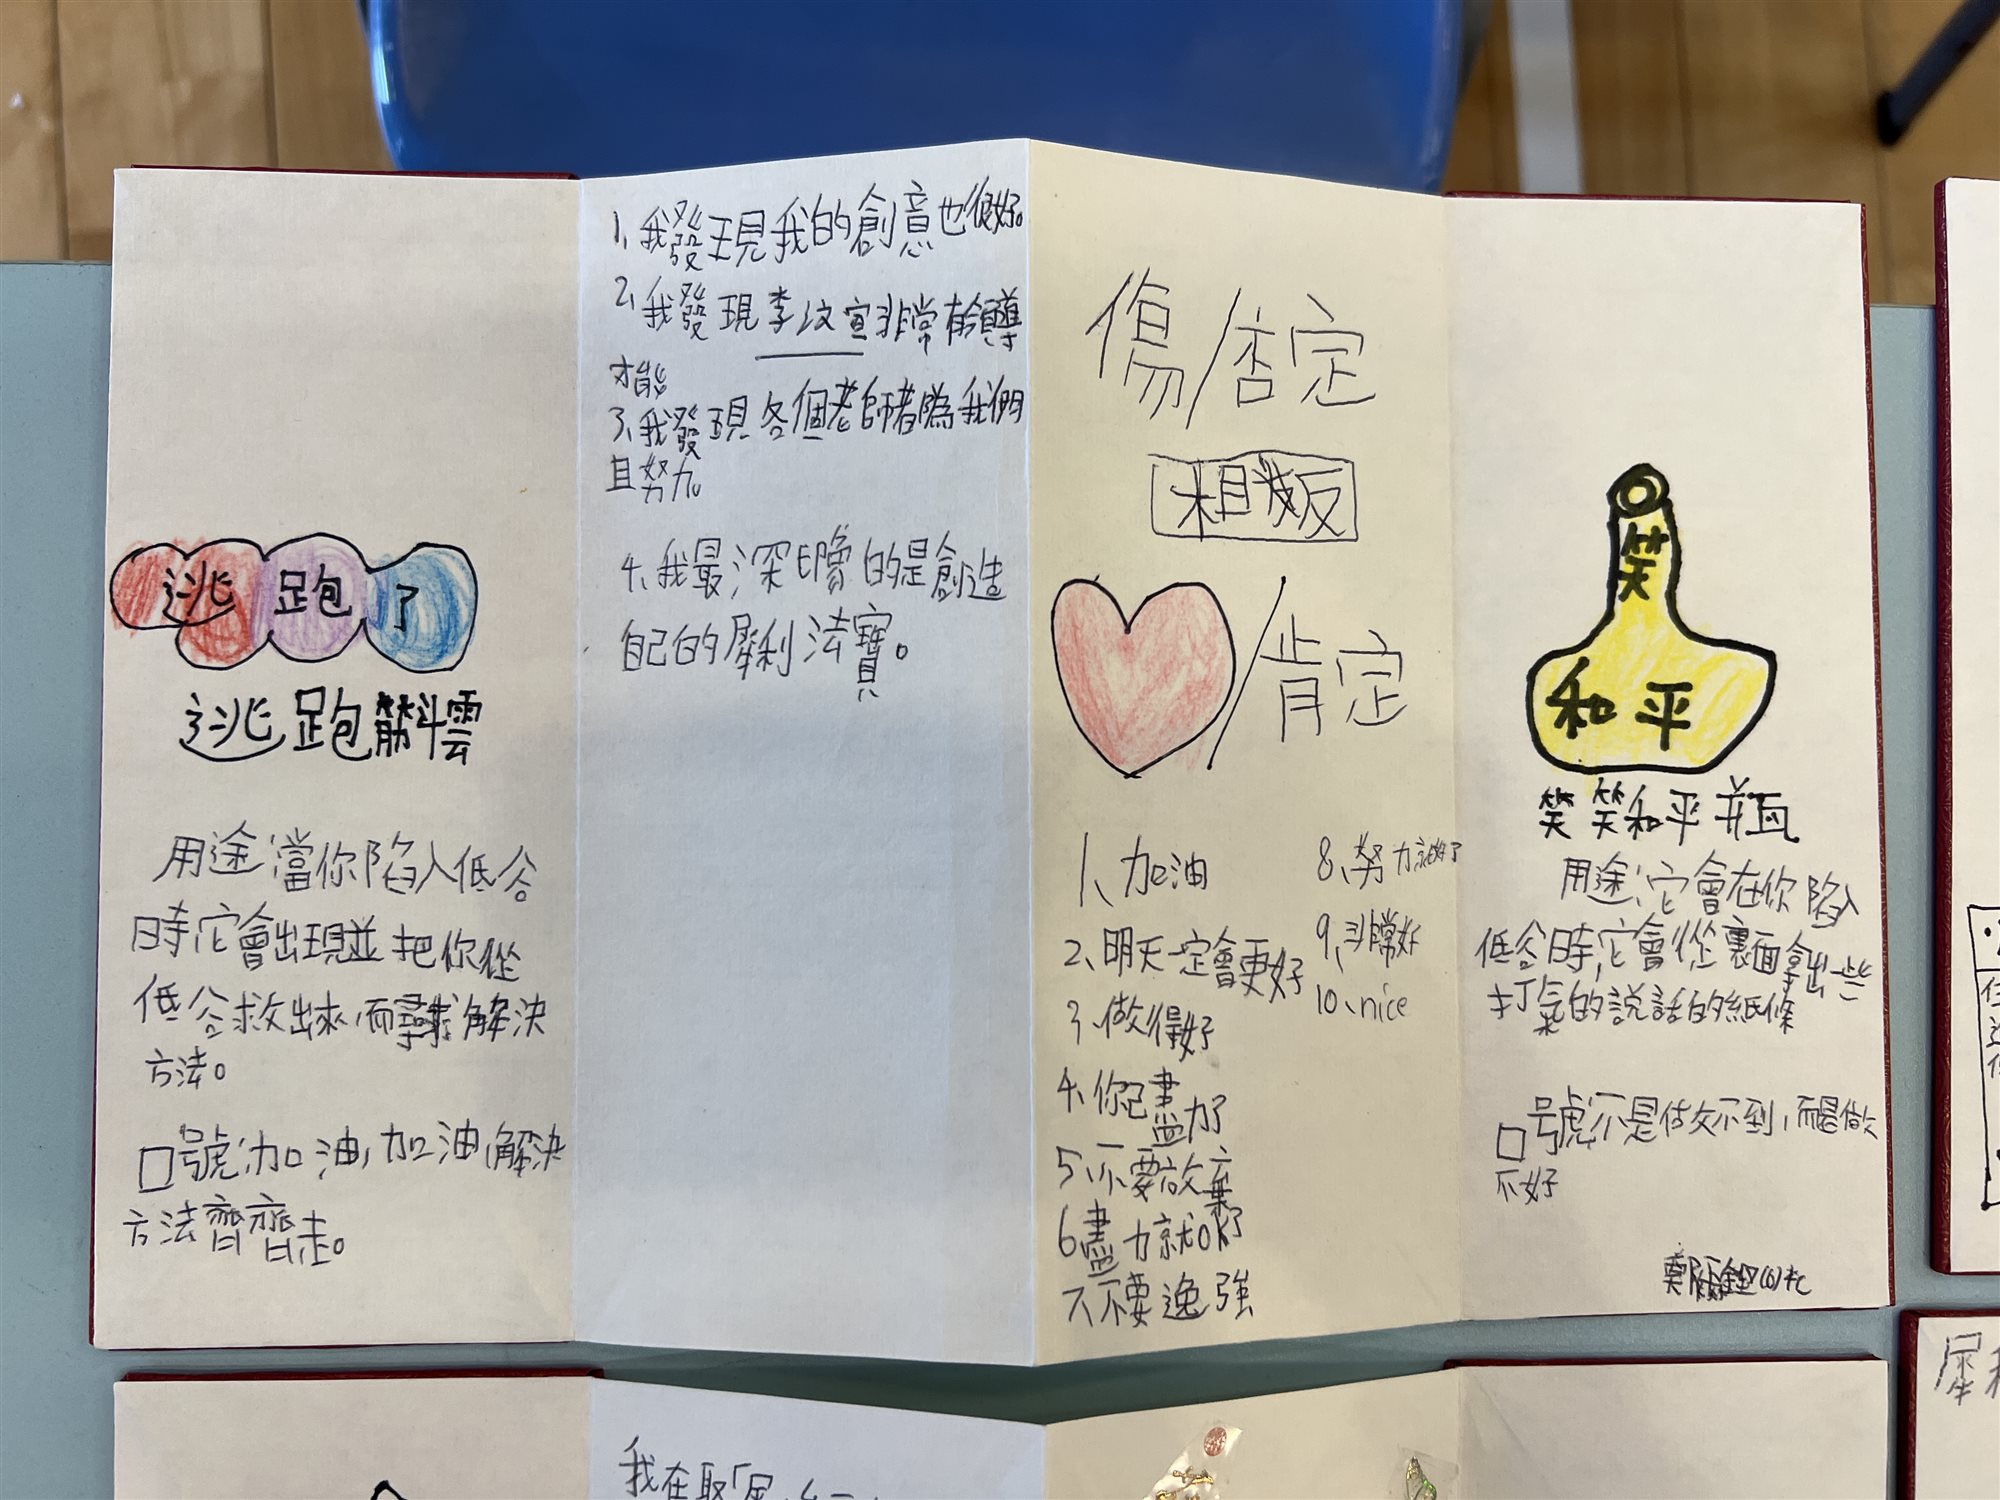 逃跑了
逃跑觔斗雲
用途:當你陷入低谷
時,它會出現並把你從
低谷救出來,而尋求解決
方法。
口號:加油,加油,解決
方法齊齊走。
1、我發現我的創意也很好。
2、我發現李汶宣非常有領導
才能
3、我發現各個老師都為我們
且努力。
4、我最深印象的是創造
自己的犀利法寶。
傷/否定
相反
/肯定
1、加油
2、明天一定會更好
3、做得好
4、你已盡力了
5、不要放棄
6、盡力就OK了
7、不要逸強
8、努力就好了
9、非常好
10、nice
笑
和平
笑笑和平瓶
用途:它會在你陷入
低谷時,它會從裏面拿出一些
打氣的說話的紙條
口號:不是做不到,而是做
不好
我在取「犀
犀利